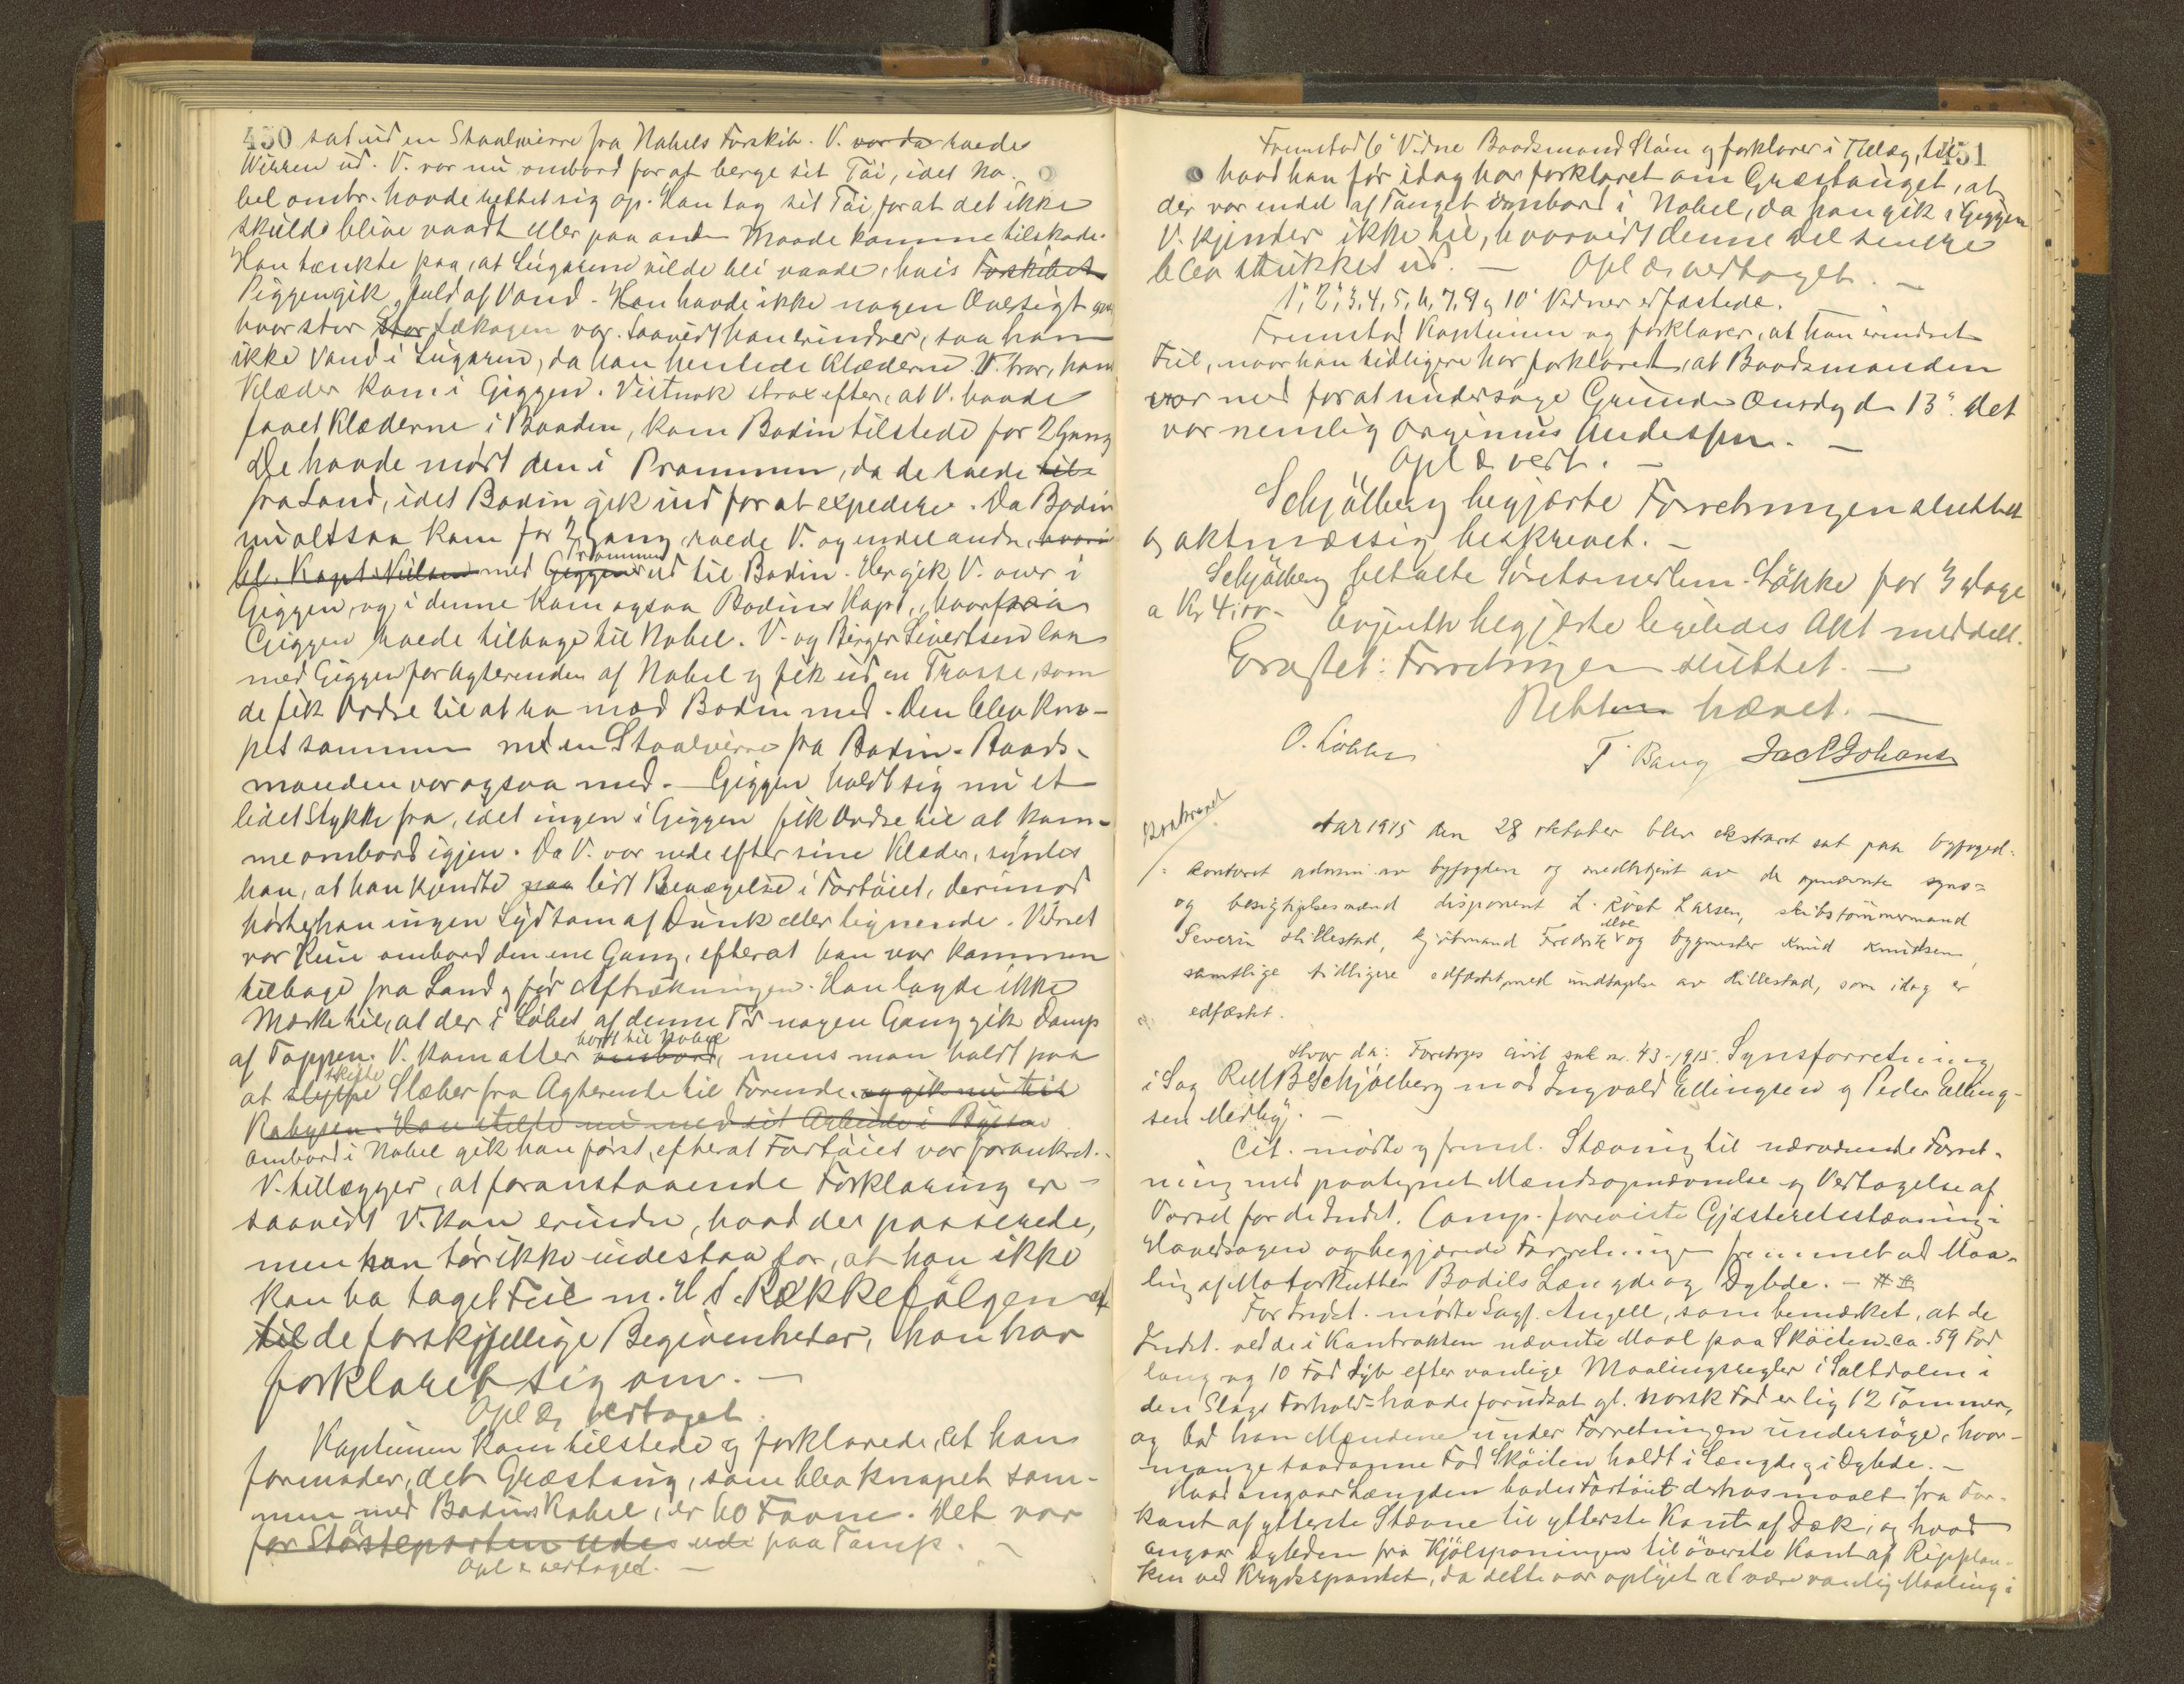 450 sat ud en Staalwirre fra Nabels Forskib. V. var da roede
Wirren ud. V. var nu ombord for at berge sit Töi, idet No-
bel omtr. havde rettet sig op. Han tog sit Töi, for at det ikke
skulde blive vaadt eller paa anden Maade komme tilskade.
Han tænkte paa, at Lugarene vilde bli vaade, hvis Forskibet
Piggen gik fuld af Vand. Han havde ikke nogen Oversigt over,
hvor stor stor Lækagen var. Saavidt han erindrer, saa han
ikke Vand i Lugaren, da han hentede Klæderne. V. tror, hans
Klæder kom i Giggen. Vistnok strax efter, at V. havde
faaet Klæderne i Baaden, kom Bodin tilstede for 2 Gang
De havde mødt den i Prammen, da de roede til
fra Land, idet Bodin gik ind for at expedere. Da Bodin
nu altsaa kom for 2 Gang, roede V. og endel andre, hvori
bl. Kapt. Nilsen med Giggen Prammen ud til Bodin. Her gik V. over i
Giggen, og i denne kom ogsaa Bodins Kapt., hvorpaa
Giggen roede tilbage til Nobel. V. og Birger Sivertsen laa
med Giggen for Agterenden af Nobel og fik ud en Trosse, som
de fik Ordre til at ro mod Bodin med. Den blev kna-
pet sammen med en Staalvirre fra Bodin. Baads-
manden var ogsaa med. Giggen holdt sig nu et
lidet Stykke fra, idet ingen i Giggen fik Ordre til at kom-
me ombord igjen. Da V. var nede efter sine Klæder, syntes
han, at han kjendte paa lidt Bevægelse i Fartöiet, derimod
hørte han ingen Lyd som af Dunk eller lignende. Vidnet
var kun ombord den ene Gang, efterat han var kommen
tilbage fra Land og før Aftrækningen. Han lagde ikke
Mærke til, at der i Løbet af denne Tid nogen Gang gik Damp
af Toppen. V. kom atter ombord, bort til Nobel mens man holdt paa
at slyppe skifte Slæber fra Agterende til Forende og gik nu til
Kabysen. Han stelte nu med sit Arbeide i Byssen
Ombord i Nobel gik han først, efterat Fartöiet var forankret.
V. tillægger, at foranstaaende Forklaring er
saavidt V. kan erindre, hvad der passerede,
men han tør ikke indestaa for, at han ikke
kan ha taget Feil m. H. t. Rækkefölgen af
til de forskjellige Begivenheder, han har
forklaret sig om. —
Opl. og vedtaget.
Kaptienen kom tilstede og forklarede, at han
formoder, det Græstaug, som blev knapet sam-
men med Bodins Kabel, er 60 Favne. Det var
for Störsteparten ude ude paa Tamp. —
Opl. & vertaget. —
451
Fremstod 6' Vidne Baadsmand Stein og forklarer i Tillæg, til
hvad han før idag har forklaret om Græstauget, at
der var endel af Tauget ombord i Nobel, da han gik i Giggen
V. kjender ikke til, hvorvidt denne Del senere
blev stukket ud. — Opl. & vedtaget. —
1', 2', 3, 4, 5, 6, 7, 9 og 10' Vidner edfæstede.
Fremstod Kapteinen og forklarer, at han erindret
Feil, naar han tidligere har forklaret, at Baadsmanden
var med for at undersøge Grunden Onsdag d. 13'. Det
var nemlig Arginus Anderssen. —
Opl. & vedt. —
Schjölberg begjærte Forretningen sluttet
og aktmæssig beskrevet. —
Schjölberg betalte Söretsmedlem Løkke for 3 Dage
a Kr 4.00. Evjenth begjærte ligeledes Akt meddelt.
Eragtet: Forretningen sluttet. —
Retten hævet. —
O. Løkke T. Bang Jac. P. Johans
Beskrevet
Aar 1915 den 28 oktober blev ekstraret sat paa byfoged-
kontoret admin. av byfogden og medbetjent av de opnævnte syns-
og besigtigelsesmænd disponent L. Røst Larsen, skibstømmermand
Severin Hillestad, kjöbmand Fredrik Moe og bygmester Knud Knudsen,
samtlige tidligere edfæstet, med undtagelse av Hillestad, som idag er
edfæstet.
Hvor da: Foretoges civil sak nr. 43-1915. Synsforretning
i Sag Rett B Schjölberg mod Ingvald Ellingsen og Peder Elling-
sen Medby. —
Cit. mødte og freml. Stævning til nærværende Forret-
ning med paategnet Mandsopnævnelse og Vedtagelse af
Varsel for de Indst. Comp. foreviste Gjesteretsstævning i
Hovedsagen og begjærede Forretningen fremmet ved Maa-
ling af Motorkutter Bodils Længde og Dybde. —
For Indst. mødte Sagf. Angell, som bemærket, at de
Indst. ved de i Kontrakten nævnte Maal paa Sköiten ca. 59 Fod
lang og 10 Fod dyb efter vanlige Maalingsregler i Saltdalen i
den Slags Forhold havde forudsat gl. norsk Fod er lig 12 Tommer,
og bad han Mændene under Forretningen undersöge, hvor-
mange saadanne Fod Sköiten holdt i Længde og i Dybde. —
Hvad angaar Længden bades Fartöiet derhos maalt fra For-
kant af ytterste Stævne til ytterste Kant af Dæk, og hvad
angaar Dybden fra Kjölspaningen til överste Kant af Ripplan-
ken ved Krydsspantet, da dette var oplyst at være vanlig Maaling i